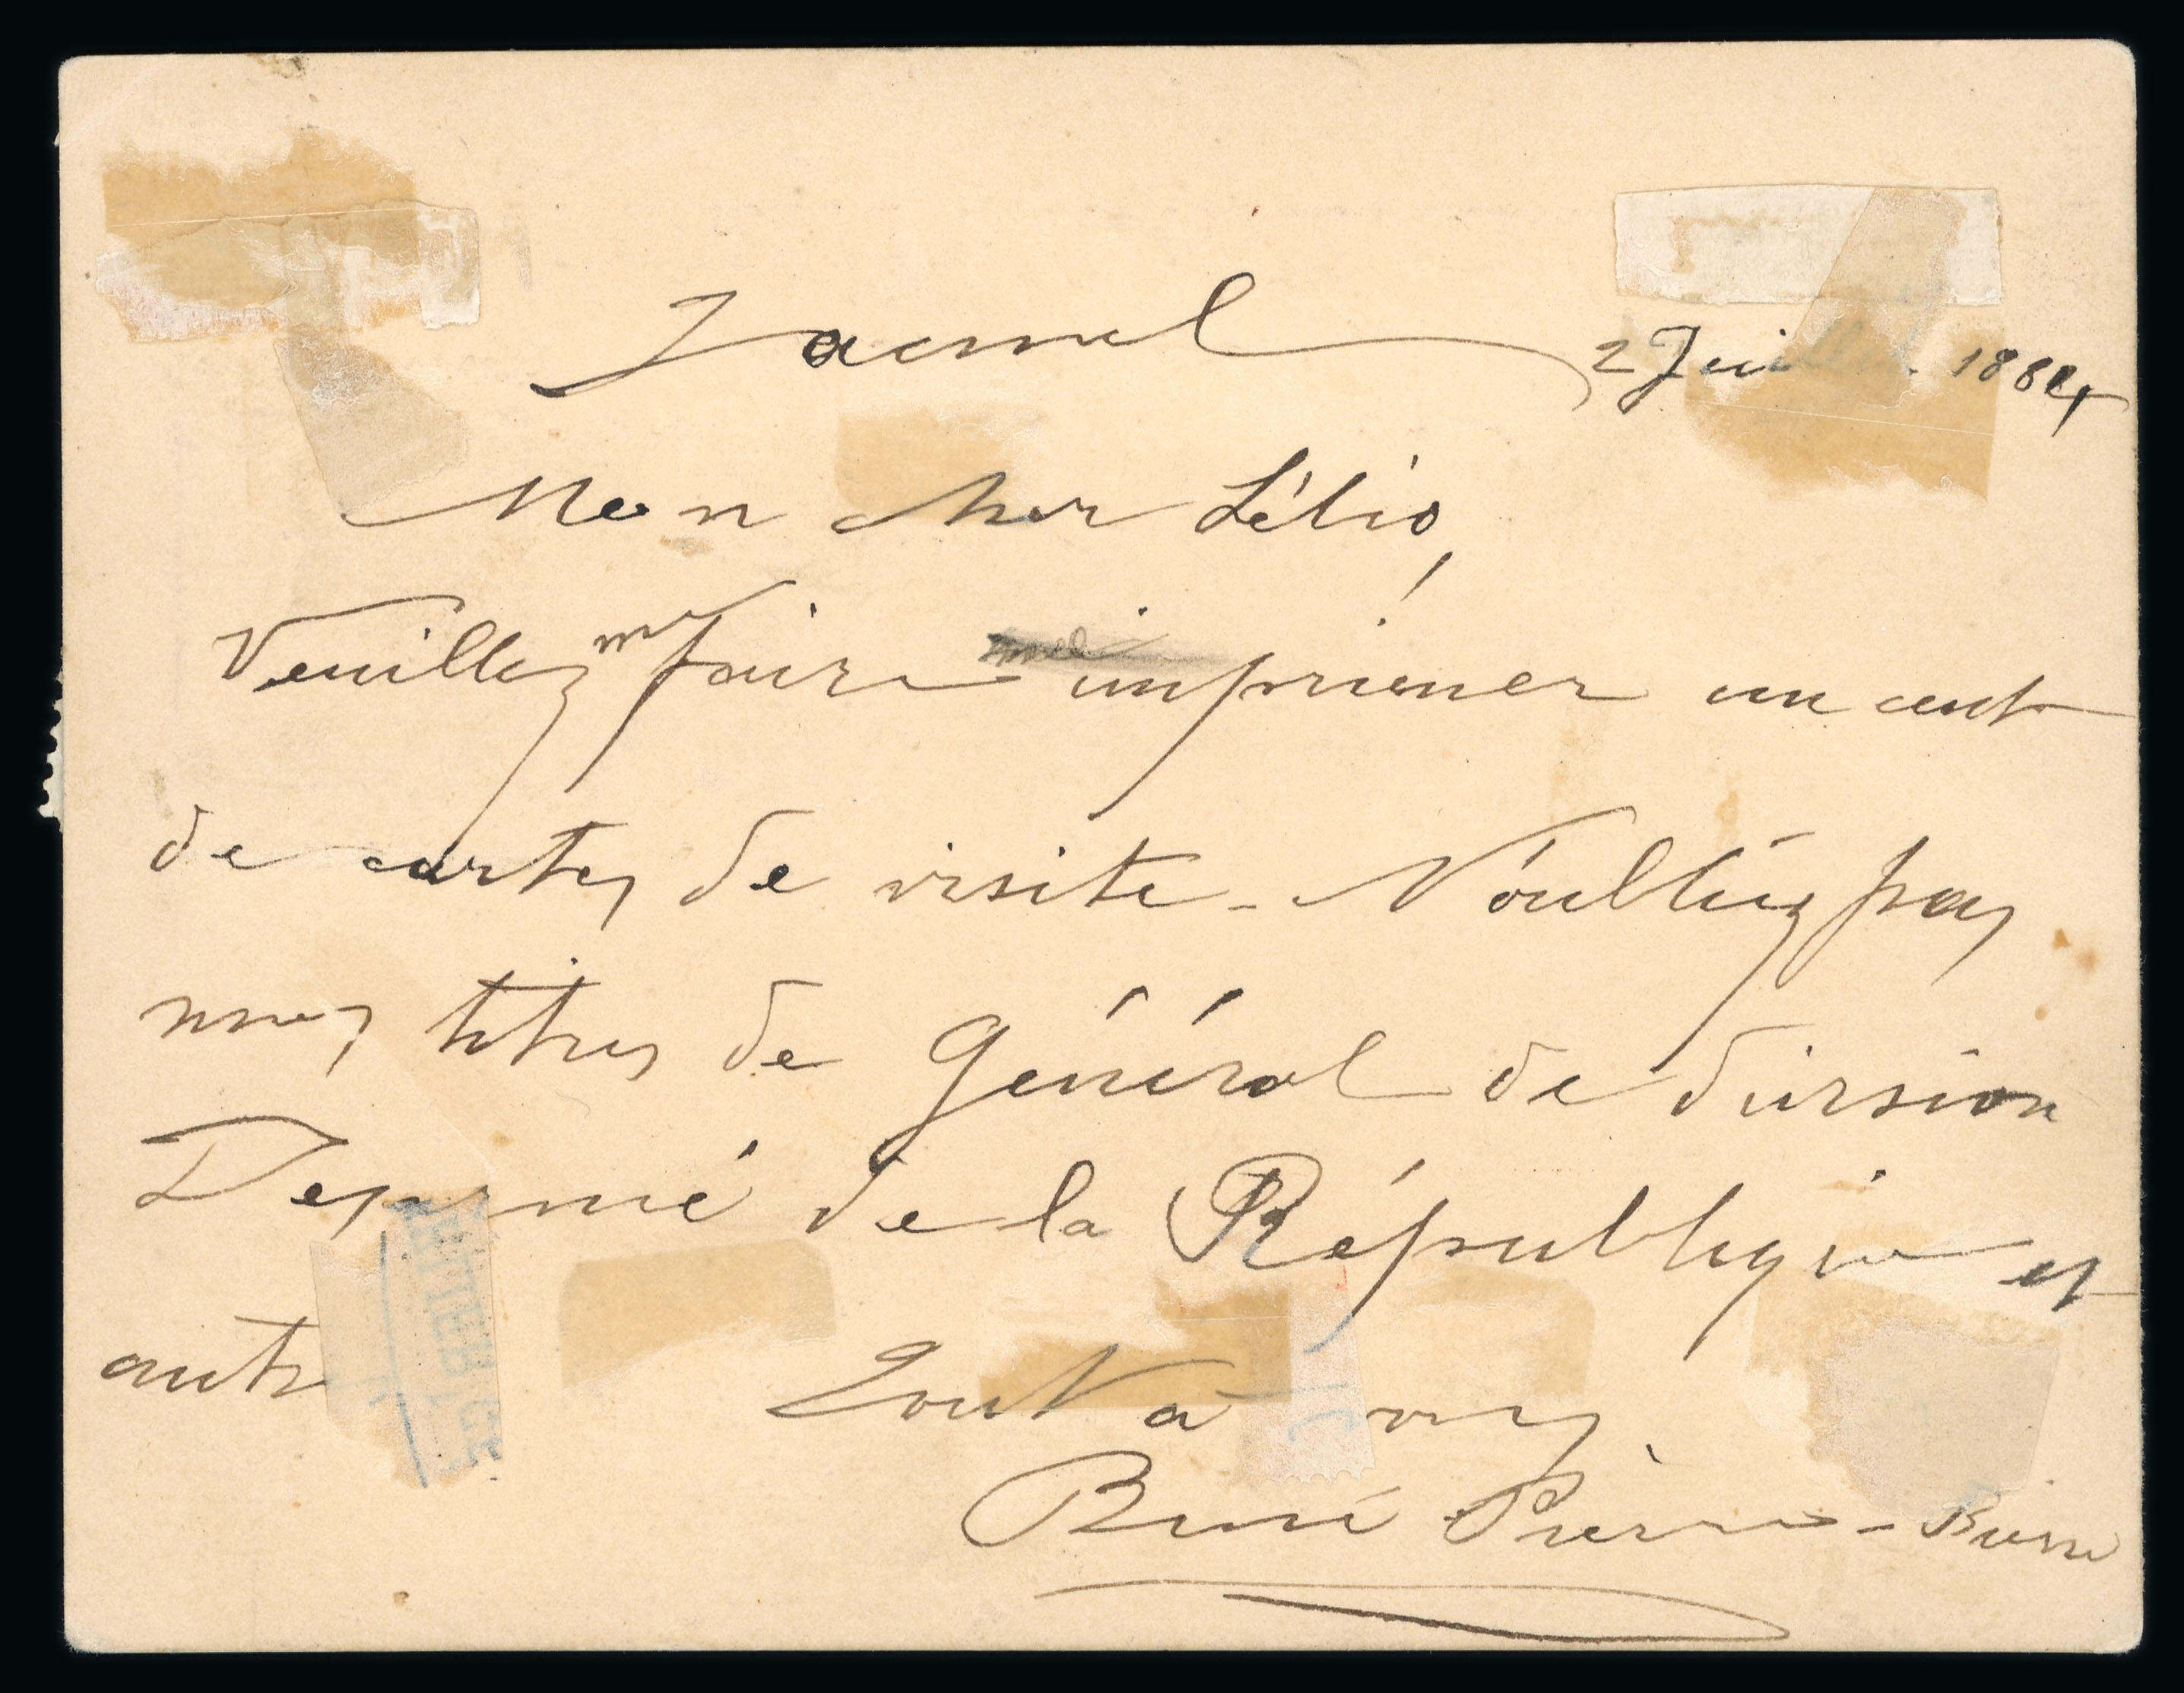 Jacmel 2 Juillet 1884
Mon cher Lélio,
Veuillez me faire imprimer un cent
de cartes de visite - N'oubliez pas
mes titres de Général de division
de la République et
autr
Tout à vous
René Pierre - Pierre